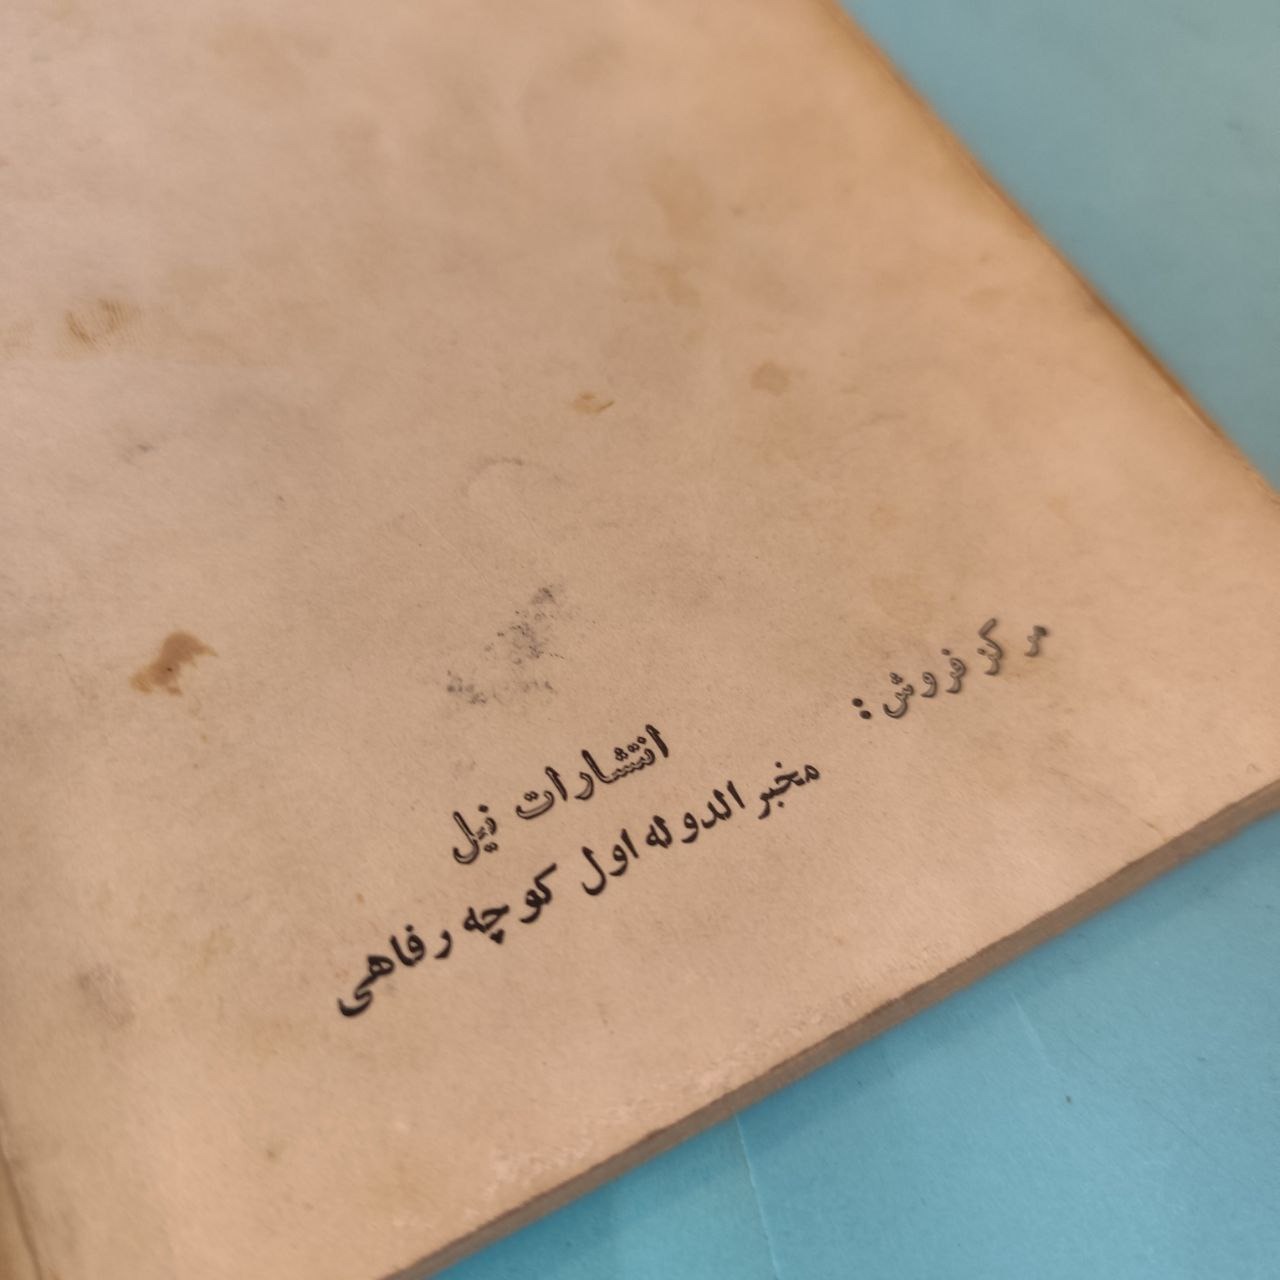 مرکز فروش :
انتشارات نیل
مخبرالدوله اول کوچه رفاهی